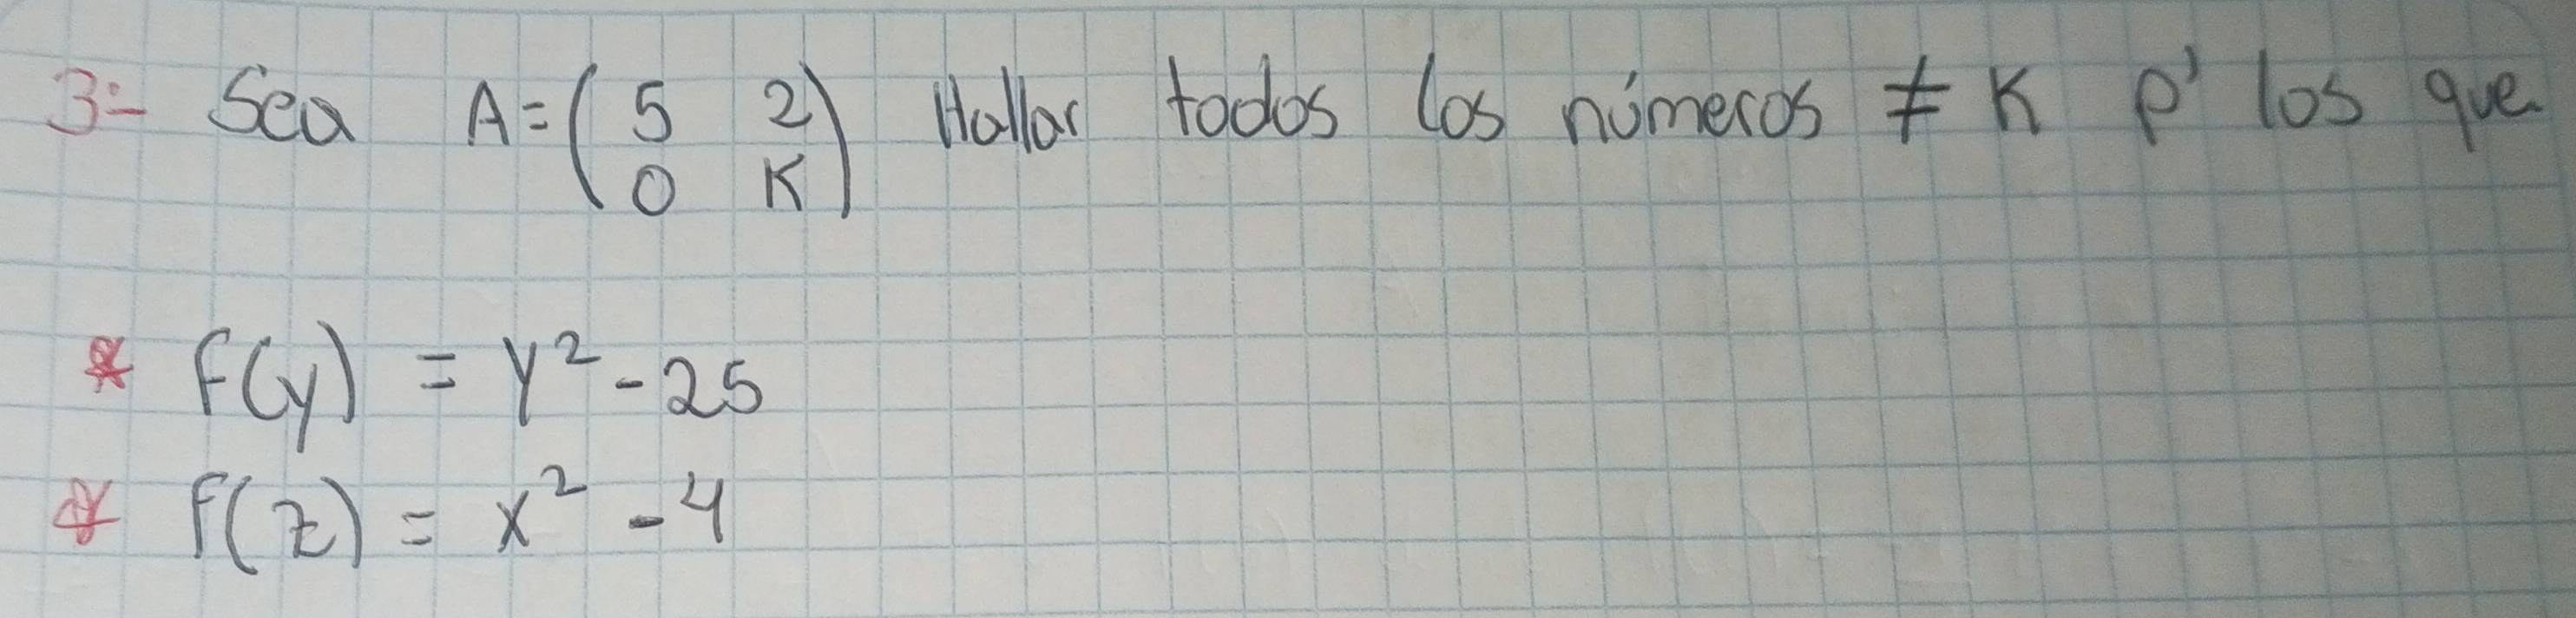 3:- Sea A = ( 5 2 ) Hallar todos los números ≠ K p' los que
( 0 K )
* F(y) = y² - 25
* F(z) = x² - 4